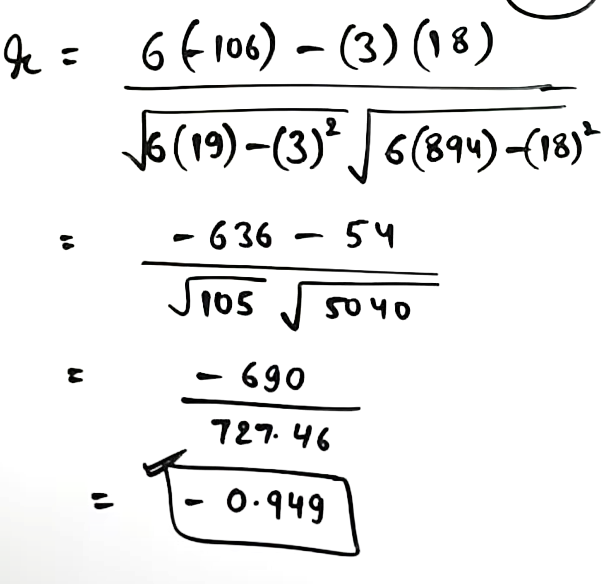 r = 6(-106) - (3)(18) / √6(19)-(3)² √6(894)-(18)²
= -636 - 54 / √105 √5040
= -690 / 727.46
= -0.949